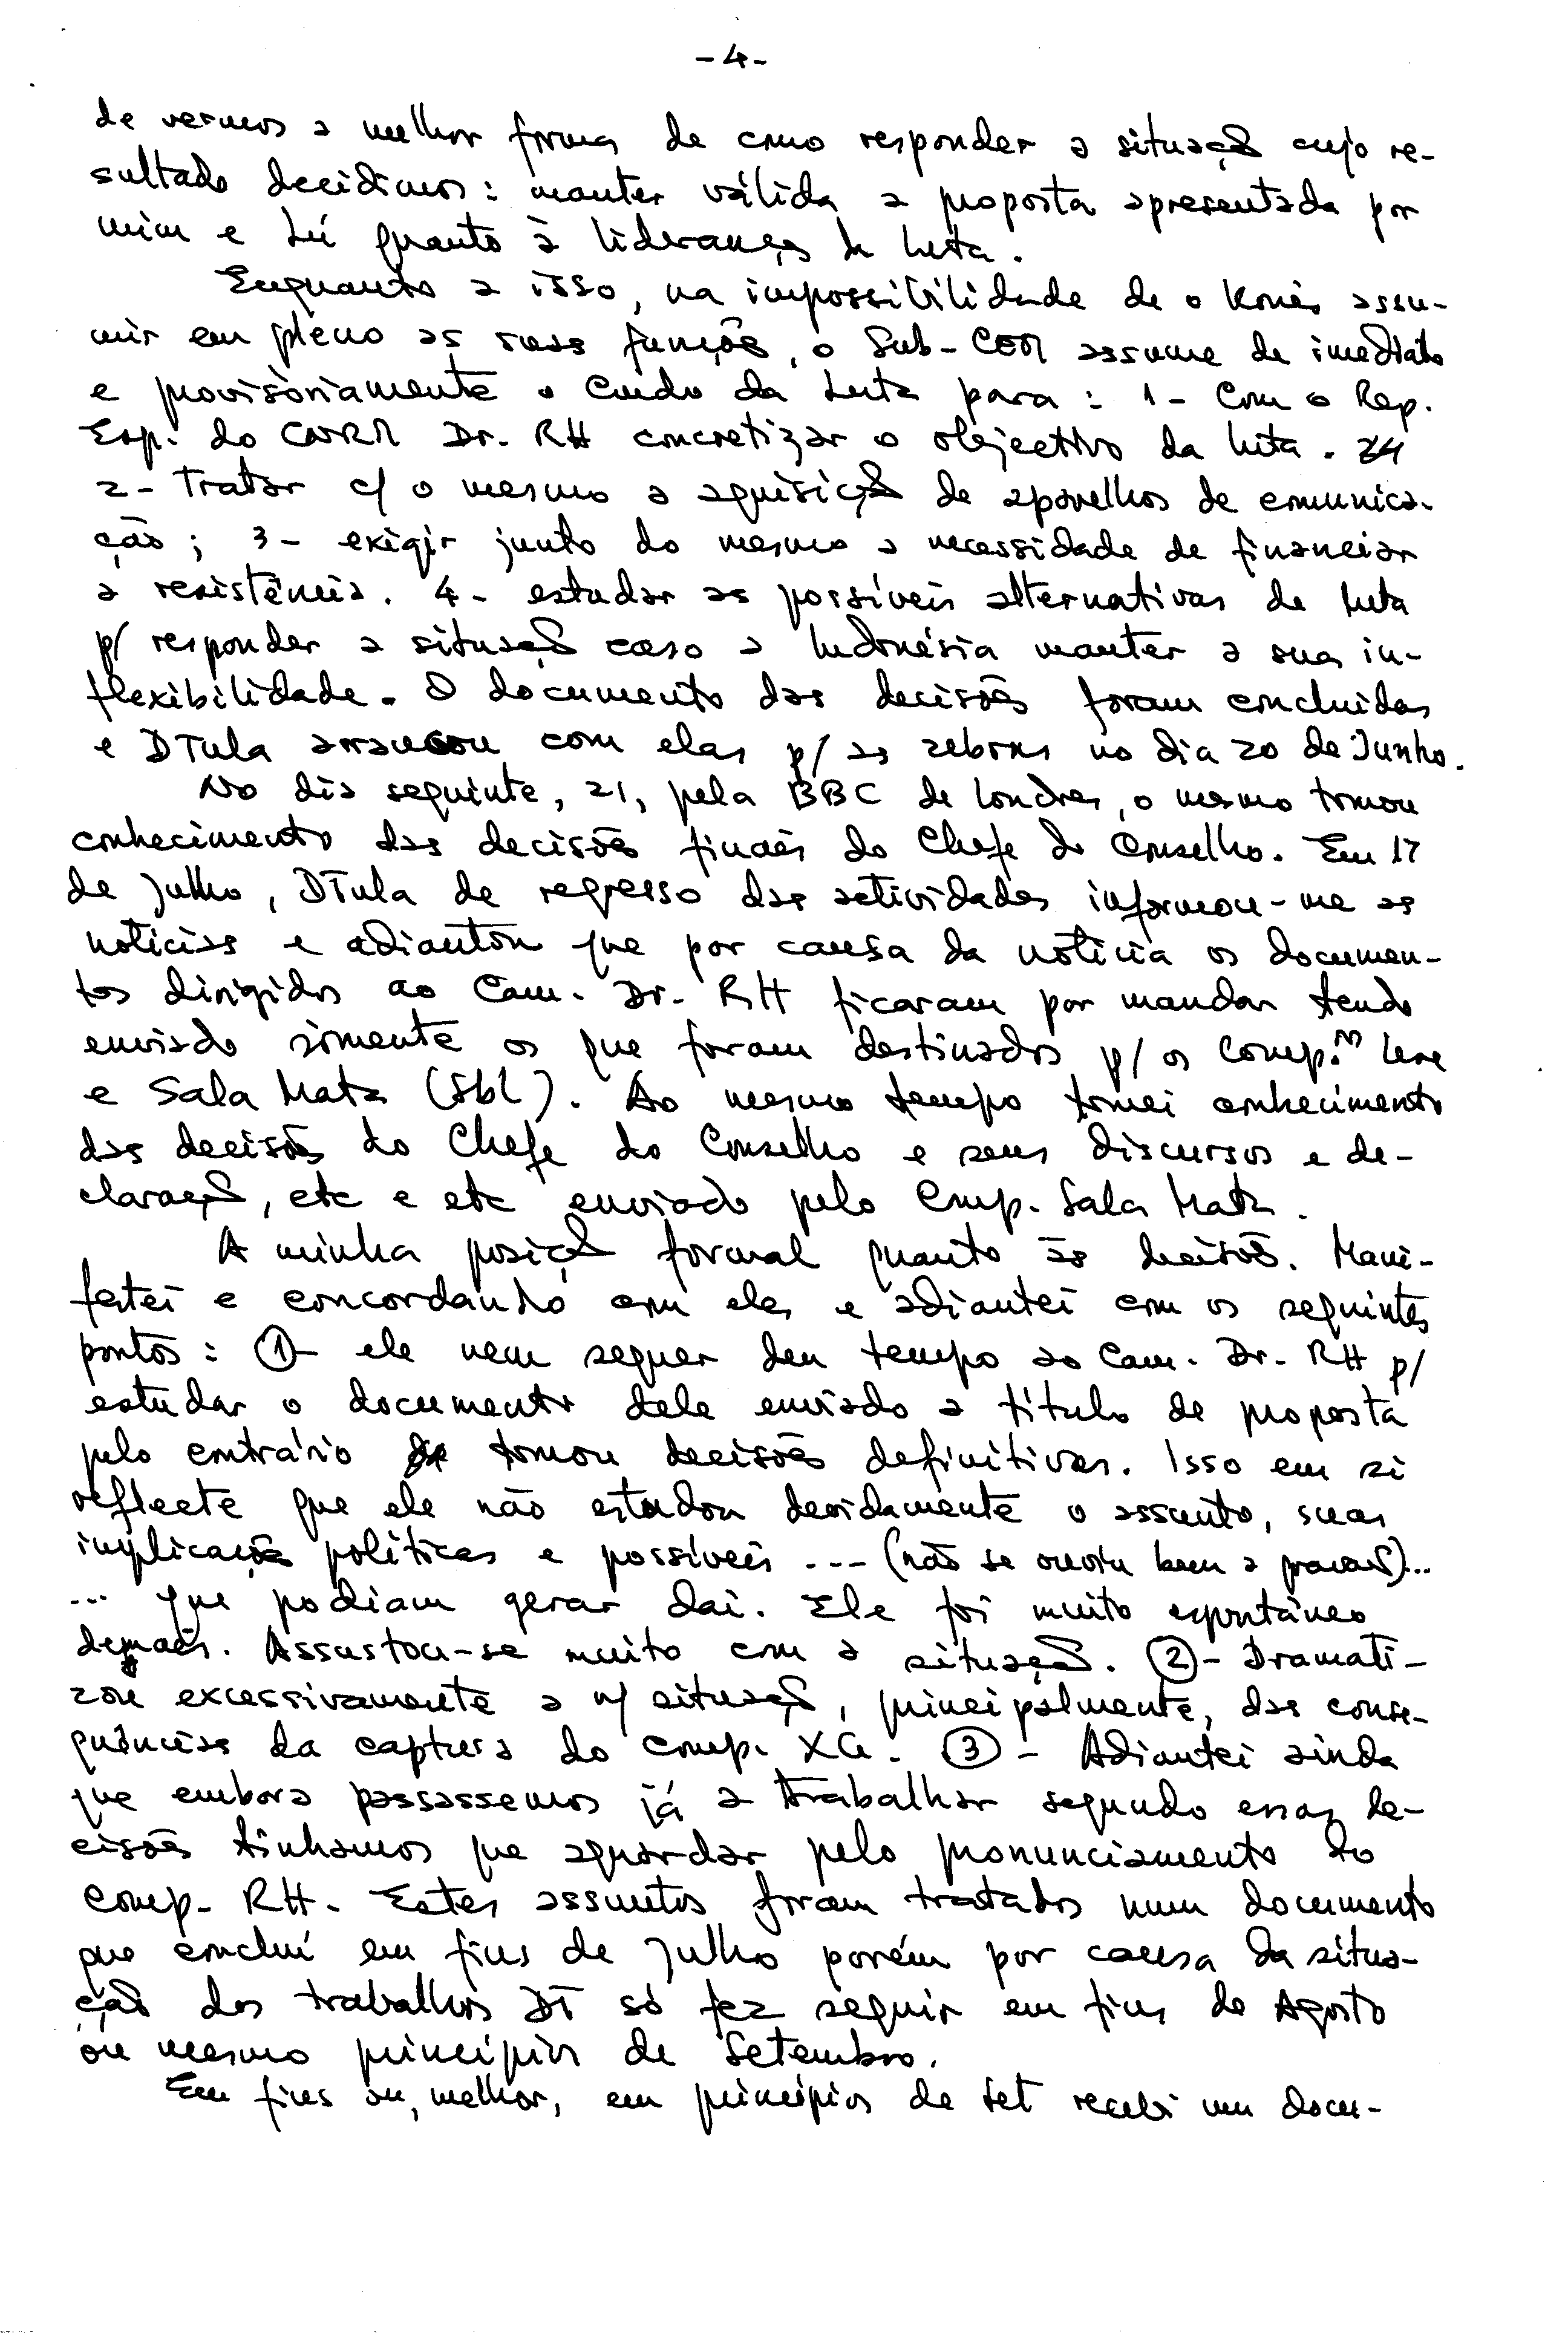 -4-
de vermos a melhor forma de como responder a situação cujo re-
sultado decidimos: manter válida a proposta apresentada por
mim e Lú quanto à liderança da Luta.
Enquanto a isso, na impossibilidade de o Konis assu-
mir em pleno as suas funções, o Sub-CEM assume de imediato
e provisòriamente o Cmdo da Luta para: 1- Com o Rep.
Esp. do CNRM Dr. RH concretizar o objectivo da luta.
2- Tratar c/ o mesmo a aquisição de aparelhos de comunica-
ção; 3- exigir junto do mesmo a necessidade de financiar
a resistência. 4- estudar as possíveis alternativas de luta
p/ responder a situação caso a Indonésia manter a sua in-
flexibilidade. O documento das decisões foram concluidas
e DTula arrancou com elas p/ as zebras no dia 20 de Junho.
No dia seguinte, 21, pela BBC de Londres, o mesmo tomou
conhecimento das decisões finaes do Chefe do Conselho. Em 17
de Julho, DTula de regresso das actividades informou-me as
notícias e adiantou que por causa da notícia os documen-
tos dirigidos ao Cam. Dr. RH ficaram por mandar tendo
enviado sòmente os que foram destinados p/ os Comp.os Lere
e Sala Mata (SbL). Ao mesmo tempo tomei conhecimento
das decisões do Chefe do Conselho e seus discursos e de-
claração, etc e etc enviado pelo Comp. Sala Mata.
A minha posição formal quanto às decisões. Mani-
festei e concordando com eles e adiantei com os seguintes
pontos: 1- ele nem sequer deu tempo ao Cam. Dr. RH p/
estudar o documento dele enviado a título de proposta
pelo contrário tomou decisões definitivas. Isso em si
reflecte que ele não estudou devidamente o assunto, suas
implicações políticas e possíveis --- (não se ouviu bem a gravação)...
... que podiam gerar daí. Ele foi muito espontâneo
demaes. Assustou-se muito com a situação. 2- Dramati-
zou excessivamente a n/ situação, principalmente, das conse-
quências da captura do comp. XG. 3- Adiantei ainda
que embora passassemos já a trabalhar segundo essas de-
cisões tinhamos que aguardar pelo pronunciamento do
comp. RH. Estes assuntos foram tratados num documento
que concluí em fins de Julho porém por causa da situa-
ção dos trabalhos DT só fez seguir em fins de Agosto
ou mesmo princípios de Setembro.
Em fins ou, melhor, em princípios de Set recebi um docu-